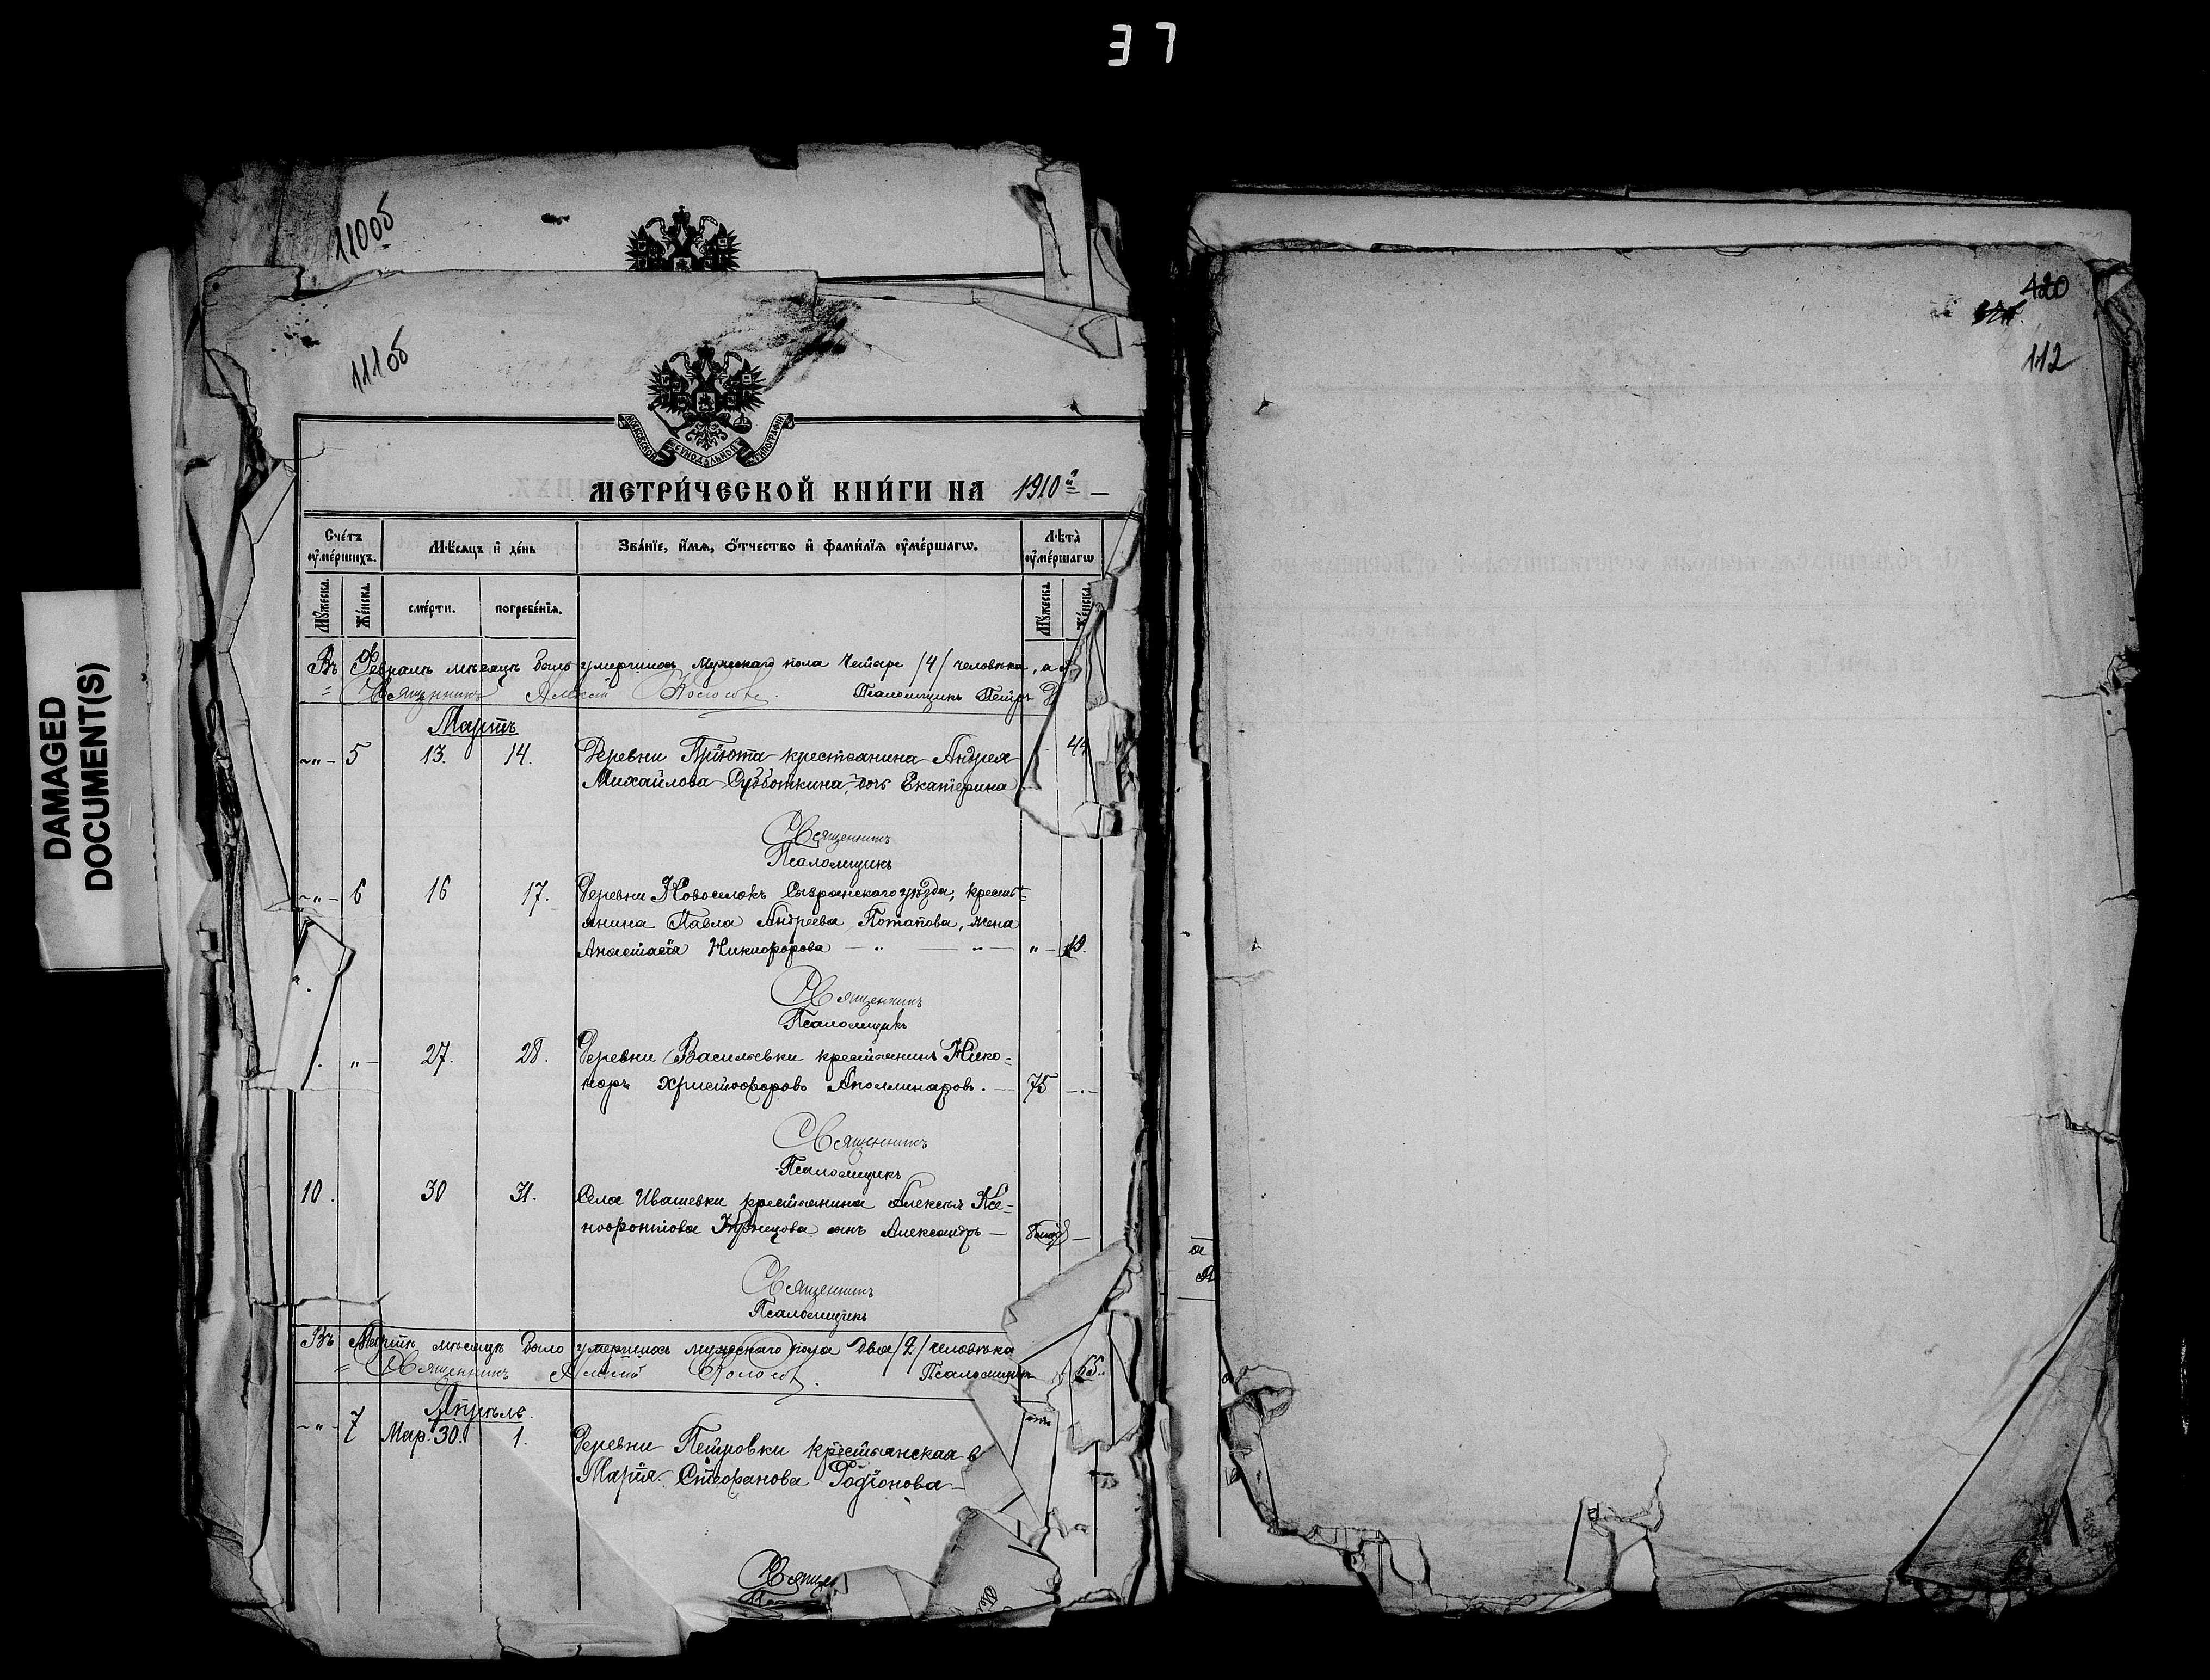 37
110об
111об
МОСКОВСКОЙ СѴНОДАЛЬНОЙ ТИПОГРАФІИ
МЕТРИ́ЧЕСКОЙ КНИ́ГИ НА 1910й
Сче́тъ оу҆ме́ршихъ.
Мѣ́сѧцъ и҆ де́нь
Зва́нїе, и҆́мѧ, ѻ҆́тчество и҆ фами́лїѧ оу҆ме́ршагѡ.
Лѣ́та̀ оу҆ме́ршагѡ
Мꙋ́жеска.
Же́нска.
сме́рти.
погребе́нїѧ.
Мꙋ́жеска.
Же́нска.
Въ Февралѣ мѣсяцѣ было умершихъ мужескаго пола четыре /4/ человѣка, а
Священникъ Алексій Псаломщикъ Петръ
Мартъ
5 13. 14. Деревни Пріюта крестьянина Андрея 44
Михайлова Субботкина, дочь Екатерина
Священникъ
Псаломщикъ
6 16 17. Деревни Новоселокъ Сызранскаго уѣзда, кресть-
янина Павла Андреева Потапова, жена
Анастасія Никифорова
Священникъ
Псаломщикъ
27. 28. Деревни Васильевки крестьянинъ Нико-
норъ Христофоровъ Аполлинаровъ. 75
Священникъ
Псаломщикъ
10. 30 31. Села Ивашевки крестьянина Алексѣя Ксе-
нофонтова Кузнецова сынъ Александръ
Священникъ
Псаломщикъ
Въ Мартѣ мѣсяцѣ было умершихъ мужескаго пола два /2/ человѣка
Священникъ Псаломщикъ
65.
Апрѣль.
7 Мар. 30. 1. Деревни Петровки крестьянская в
Марія Стефанова Родіонова
Священ
120
112
DAMAGED
DOCUMENT(S)